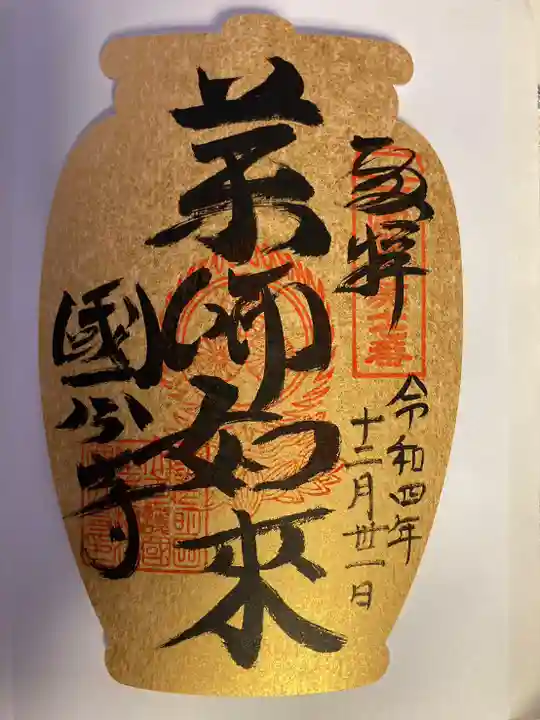 敬拝
令和四年
十二月卅一日
薬師如來
國分寺